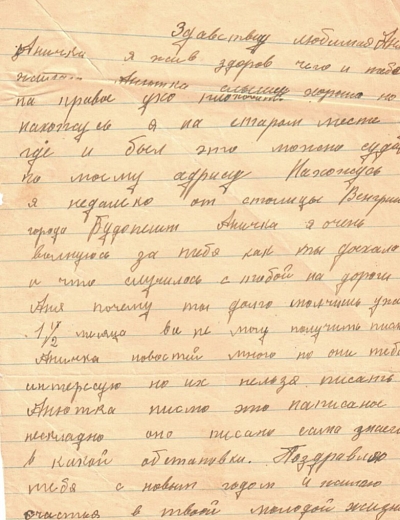 Здравствуй любимая Аня
Аничка я жив здоров чего и тебе
желаю. Анютка слышу хорошо но
на правое ухо
нахожусь я на старом месте
где и был это можно суди
по моему адрису Нахожусь
я недалеко от столицы Венгрии
города Будопешт Аничка я очень
волнуюсь за тебя как ты доехала
и что случилось с тобой на дороги
Аня почему ты долго молчишь уже
1½ месяца как не могу получить письм
Аничка новостей много но они тебе
интересую но их нельзя писать
Анютка писмо это написаное
нескладно оно писано сама знаеш
в какой обстановки. Поздравляю
тебя с новым годом и желаю
счастья в твоей молодой жизни